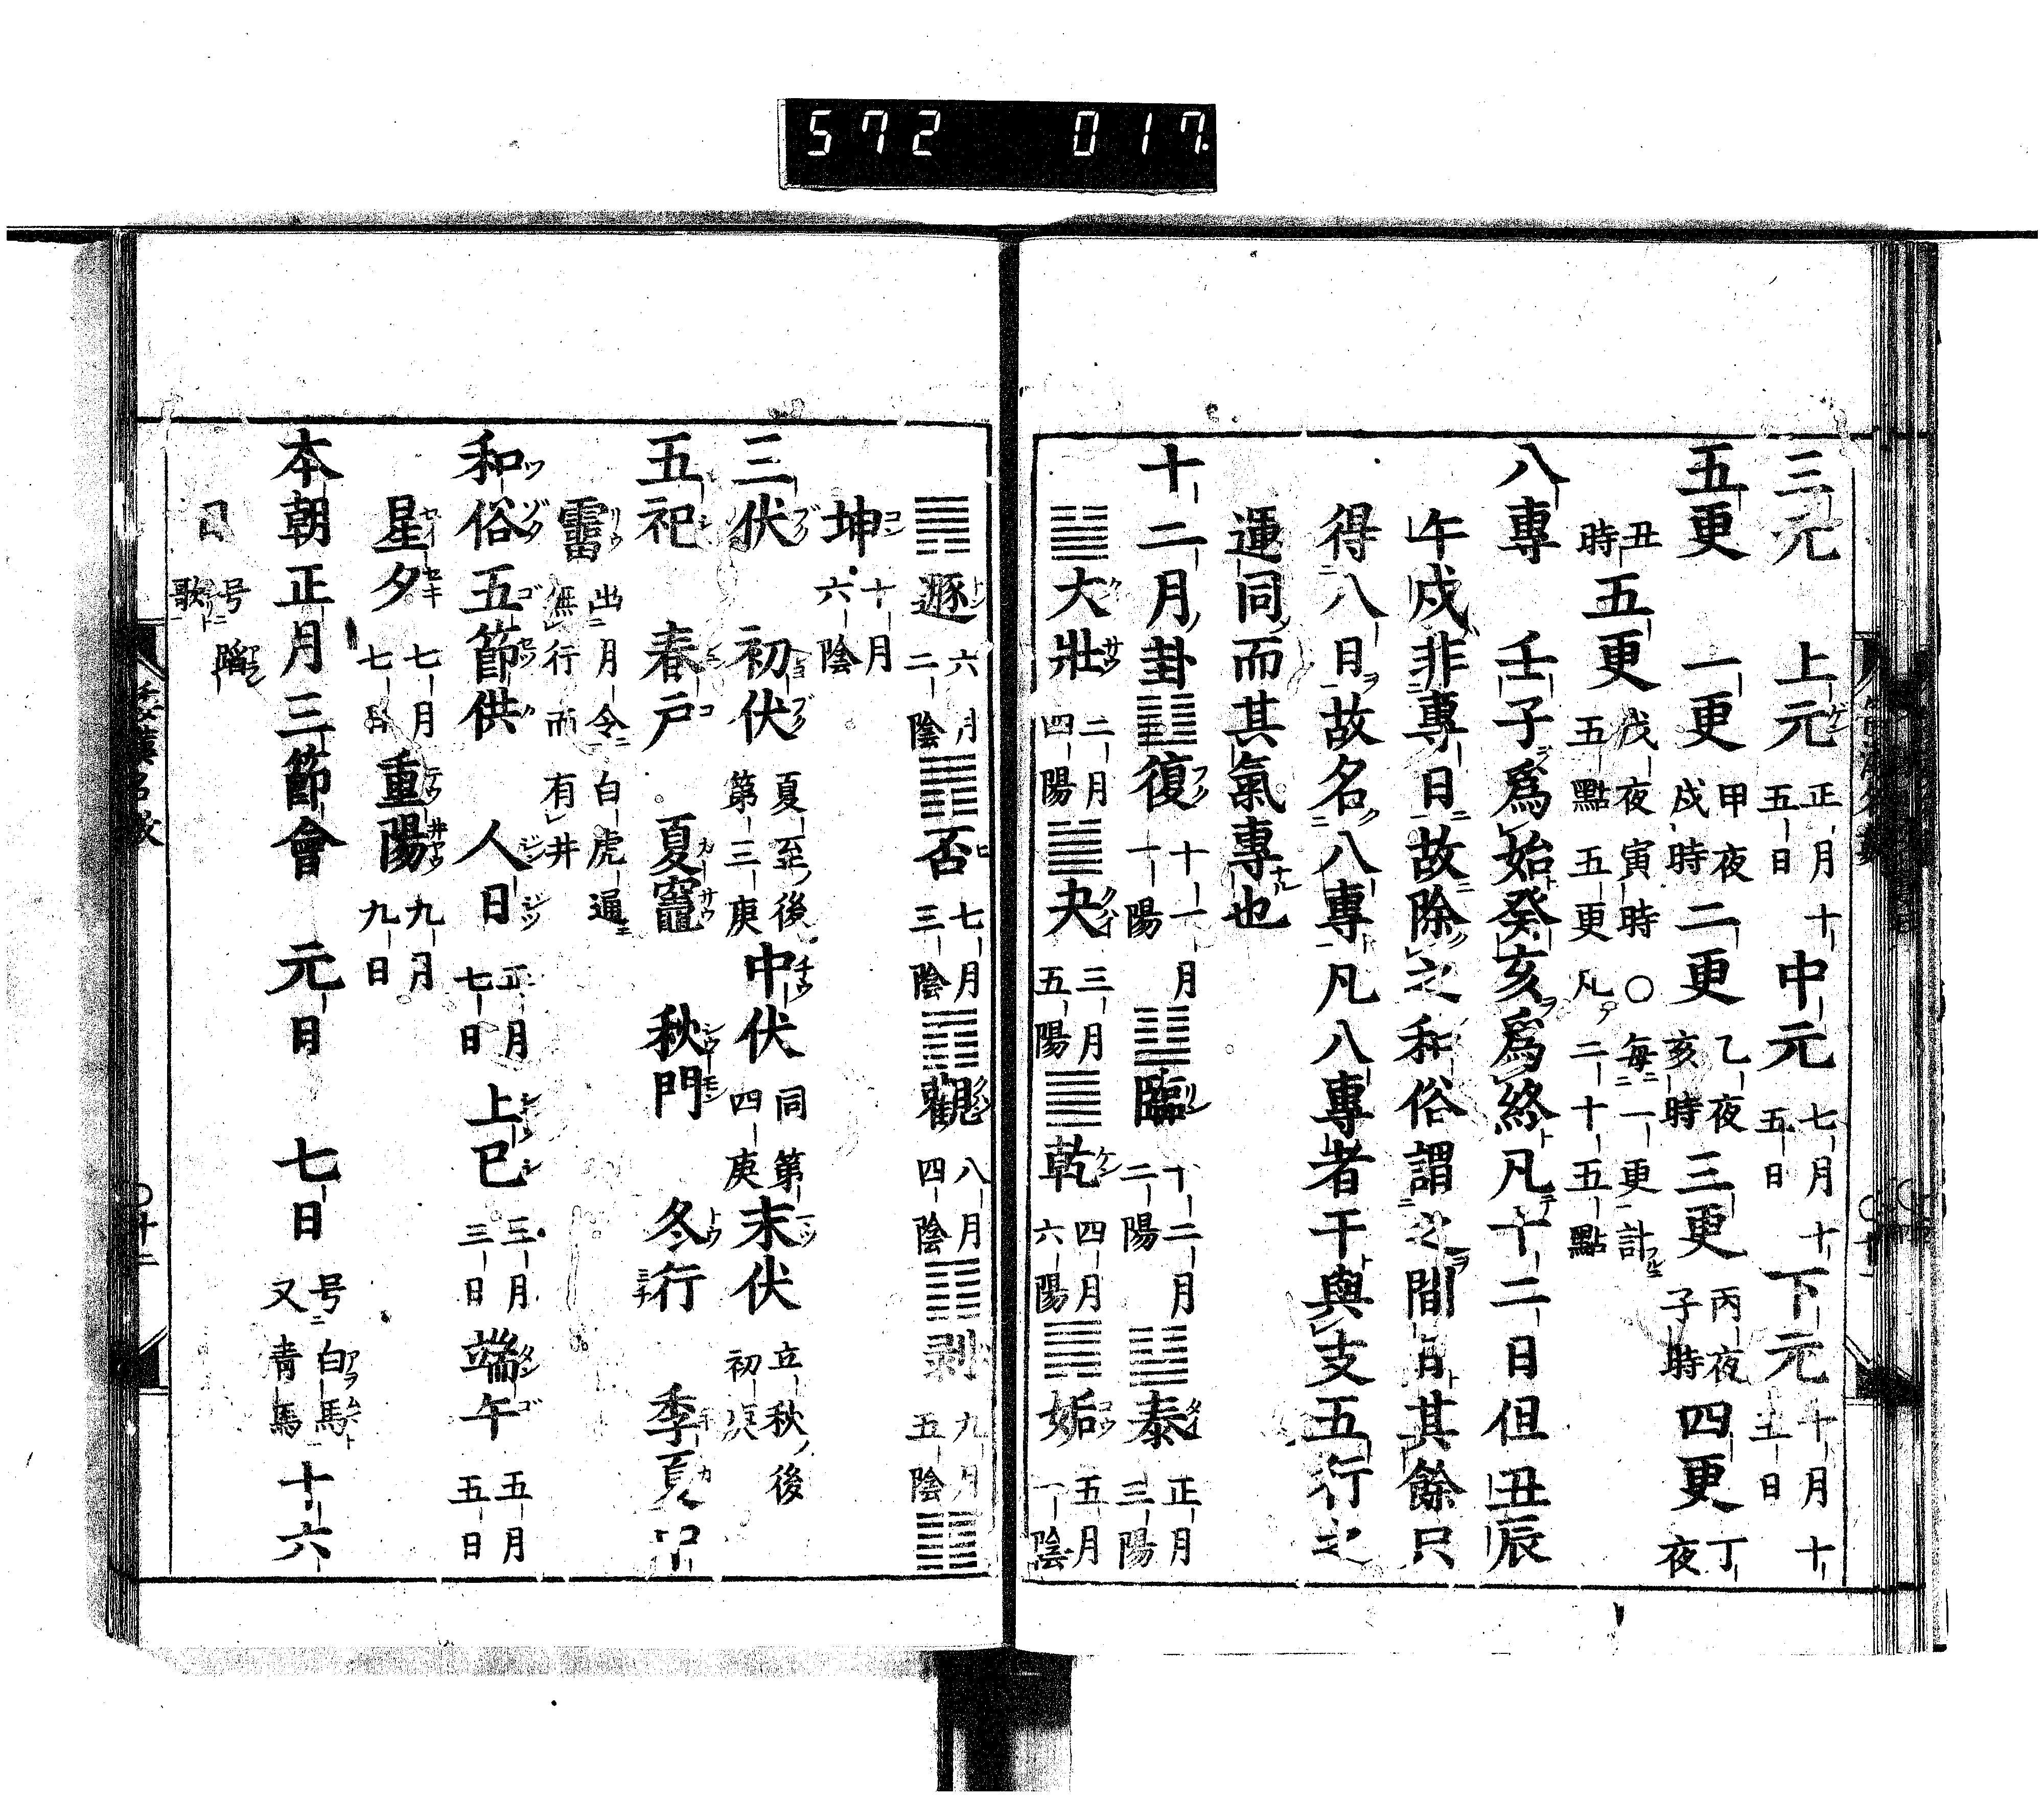 572 017
三元 上元 正月十五日 中元 七月十五日 下元 十月十五日
五更 一更 甲夜戌時 二更 乙夜亥時 三更 丙夜子時 四更 丁夜
丑時 五更 戊夜寅時 ○毎一更計五點五更凡二十五點
八專 壬子爲始癸亥爲終凡十二日但丑辰
午戌非專日故除之和俗謂之間日其餘只
得八日故名八專凡八專者干與支五行之
運同而其氣專也
十二月卦 ䷗復 十一月一陽 ䷒臨 十二月二陽 ䷊泰 正月三陽
䷡大壯 二月四陽 ䷪夬 三月五陽 ䷀乾 四月六陽 ䷫姤 五月一陰
䷠遯 六月二陰 ䷋否 七月三陰 ䷓觀 八月四陰 ䷖剥 九月五陰 ䷁
坤 十月六陰
三伏 初伏 夏至後第三庚 中伏 同第四庚 末伏 立秋後初庚
五祀 春戸 夏竈 秋門 冬行 季夏中
霤 出月令白虎通無行而有井
和俗五節供 人日 正月七日 上巳 三月三日 端午 五月五日
星夕 七月七日 重陽 九月九日
本朝正月三節會 元日 七日 号白馬又青馬 十六
日 号蹈歌